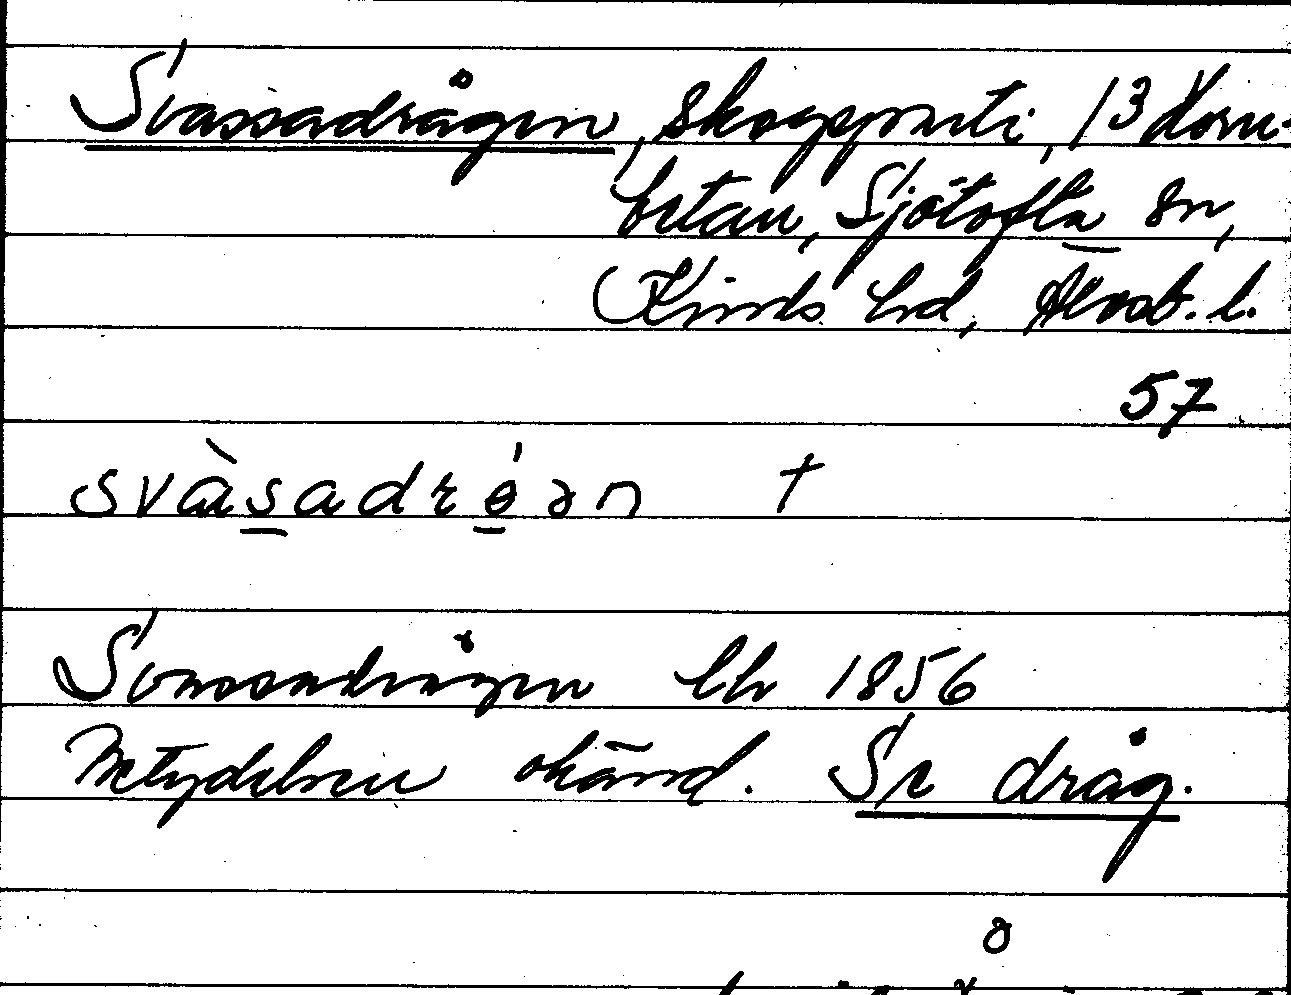 Svassadrågen, skogsparti, 13 Horn-
betan, Sjötofta sn,
Kinds hd, Älvsb. l.
57
svàsadrɵ́ən †
Svassadrågen lh 1856
Betydelsen okänd. Se dråg.